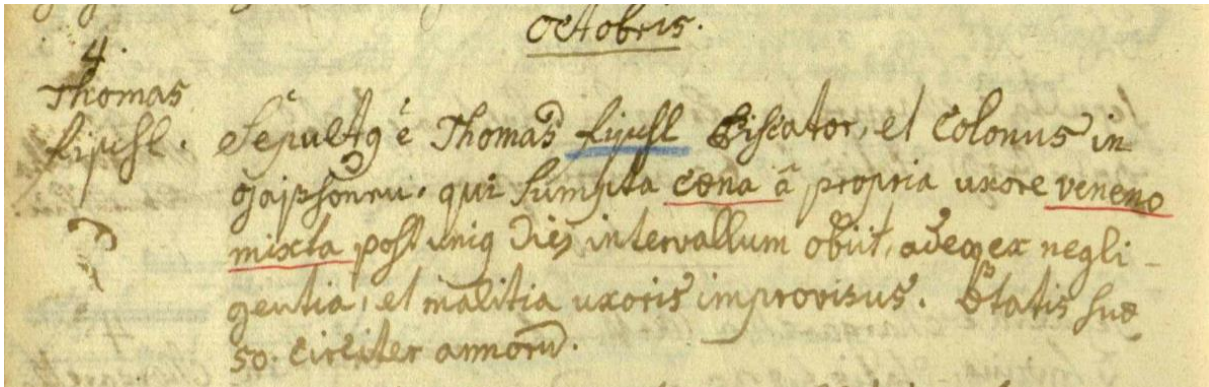 Octobris.
4.
Thomas
Sepultq ē Thomas Piscator, et Colonus in
qui sumpta cœna â propria uxore veneno
mixta post uniq Dies intervallum obiit, adeoq ex negli-
gentia, et malitia uxoris improvisus. Ætatis suæ
50. circiter annorū.